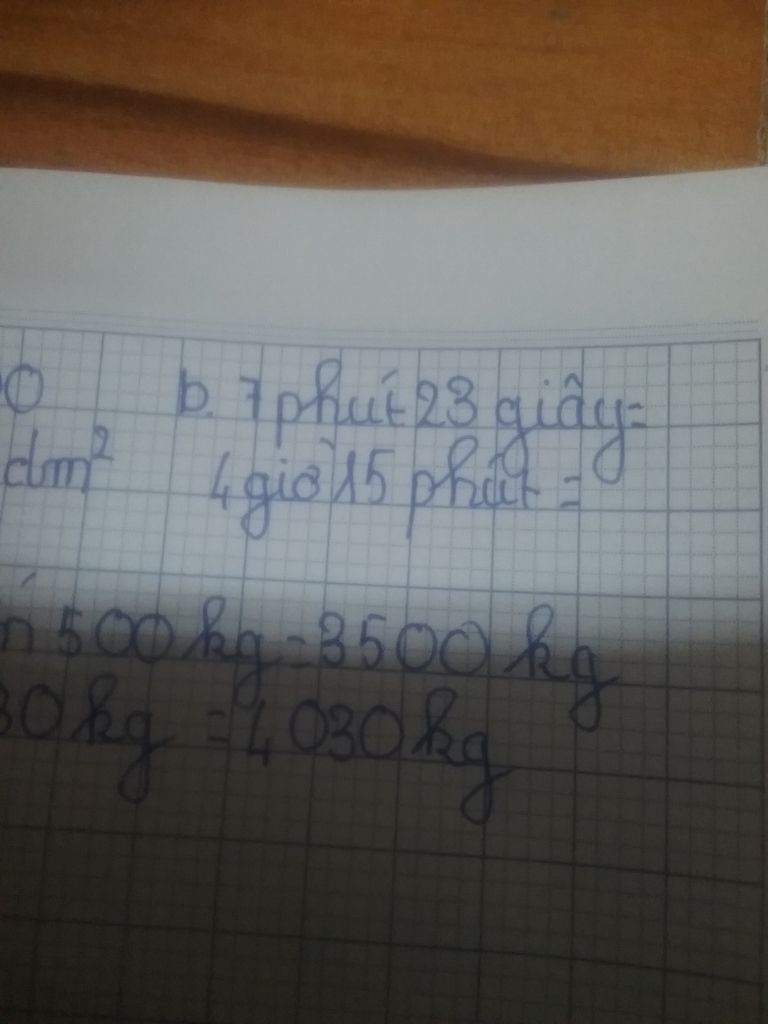 0 b. 7 phút 23 giây=
dm² 4 giờ 15 phút =
500 kg = 3500 kg
30 kg = 4 030 kg